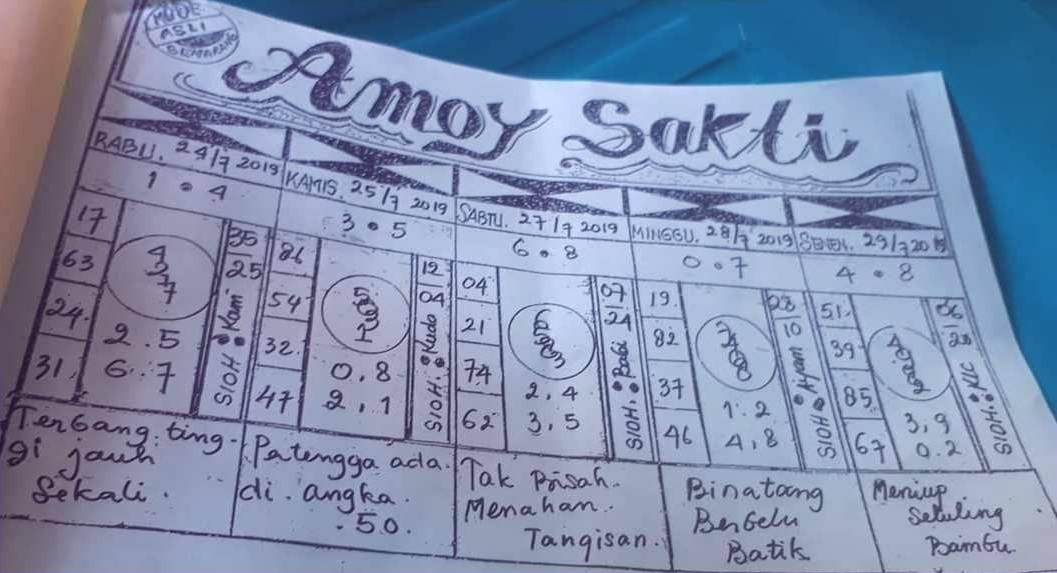 ASLI
Amoy Sakti
RABU. 24/7 2019
1 • 4
17
63
24.
31
2.5
6.7
35
25
SIOH:
KAMIS. 25/7 2019
3 • 5
86
54
32.
47
0.8
2,1
12
04
SIOH.: Kuda
SABTU. 27/7 2019
6 • 8
04
21
74
62
2,4
3,5
07
24
SIOH.: Babi
MINGGU. 28/7 2019
0 • 7
19.
82
37
46
1.2
4,8
28
10
SIOH: Ayam
SENEN. 29/7 2019
4 • 8
51.
39
85
67
3,9
0.2
06
20
SIOH:
Terbang. ting-
gi jauh
Sekali.
Patengga ada.
di. angka.
.50.
Tak Pisah.
Menahan.
Tangisan.
Binatang
Berbelu
Batik
Meniup
Seluling
Bambu